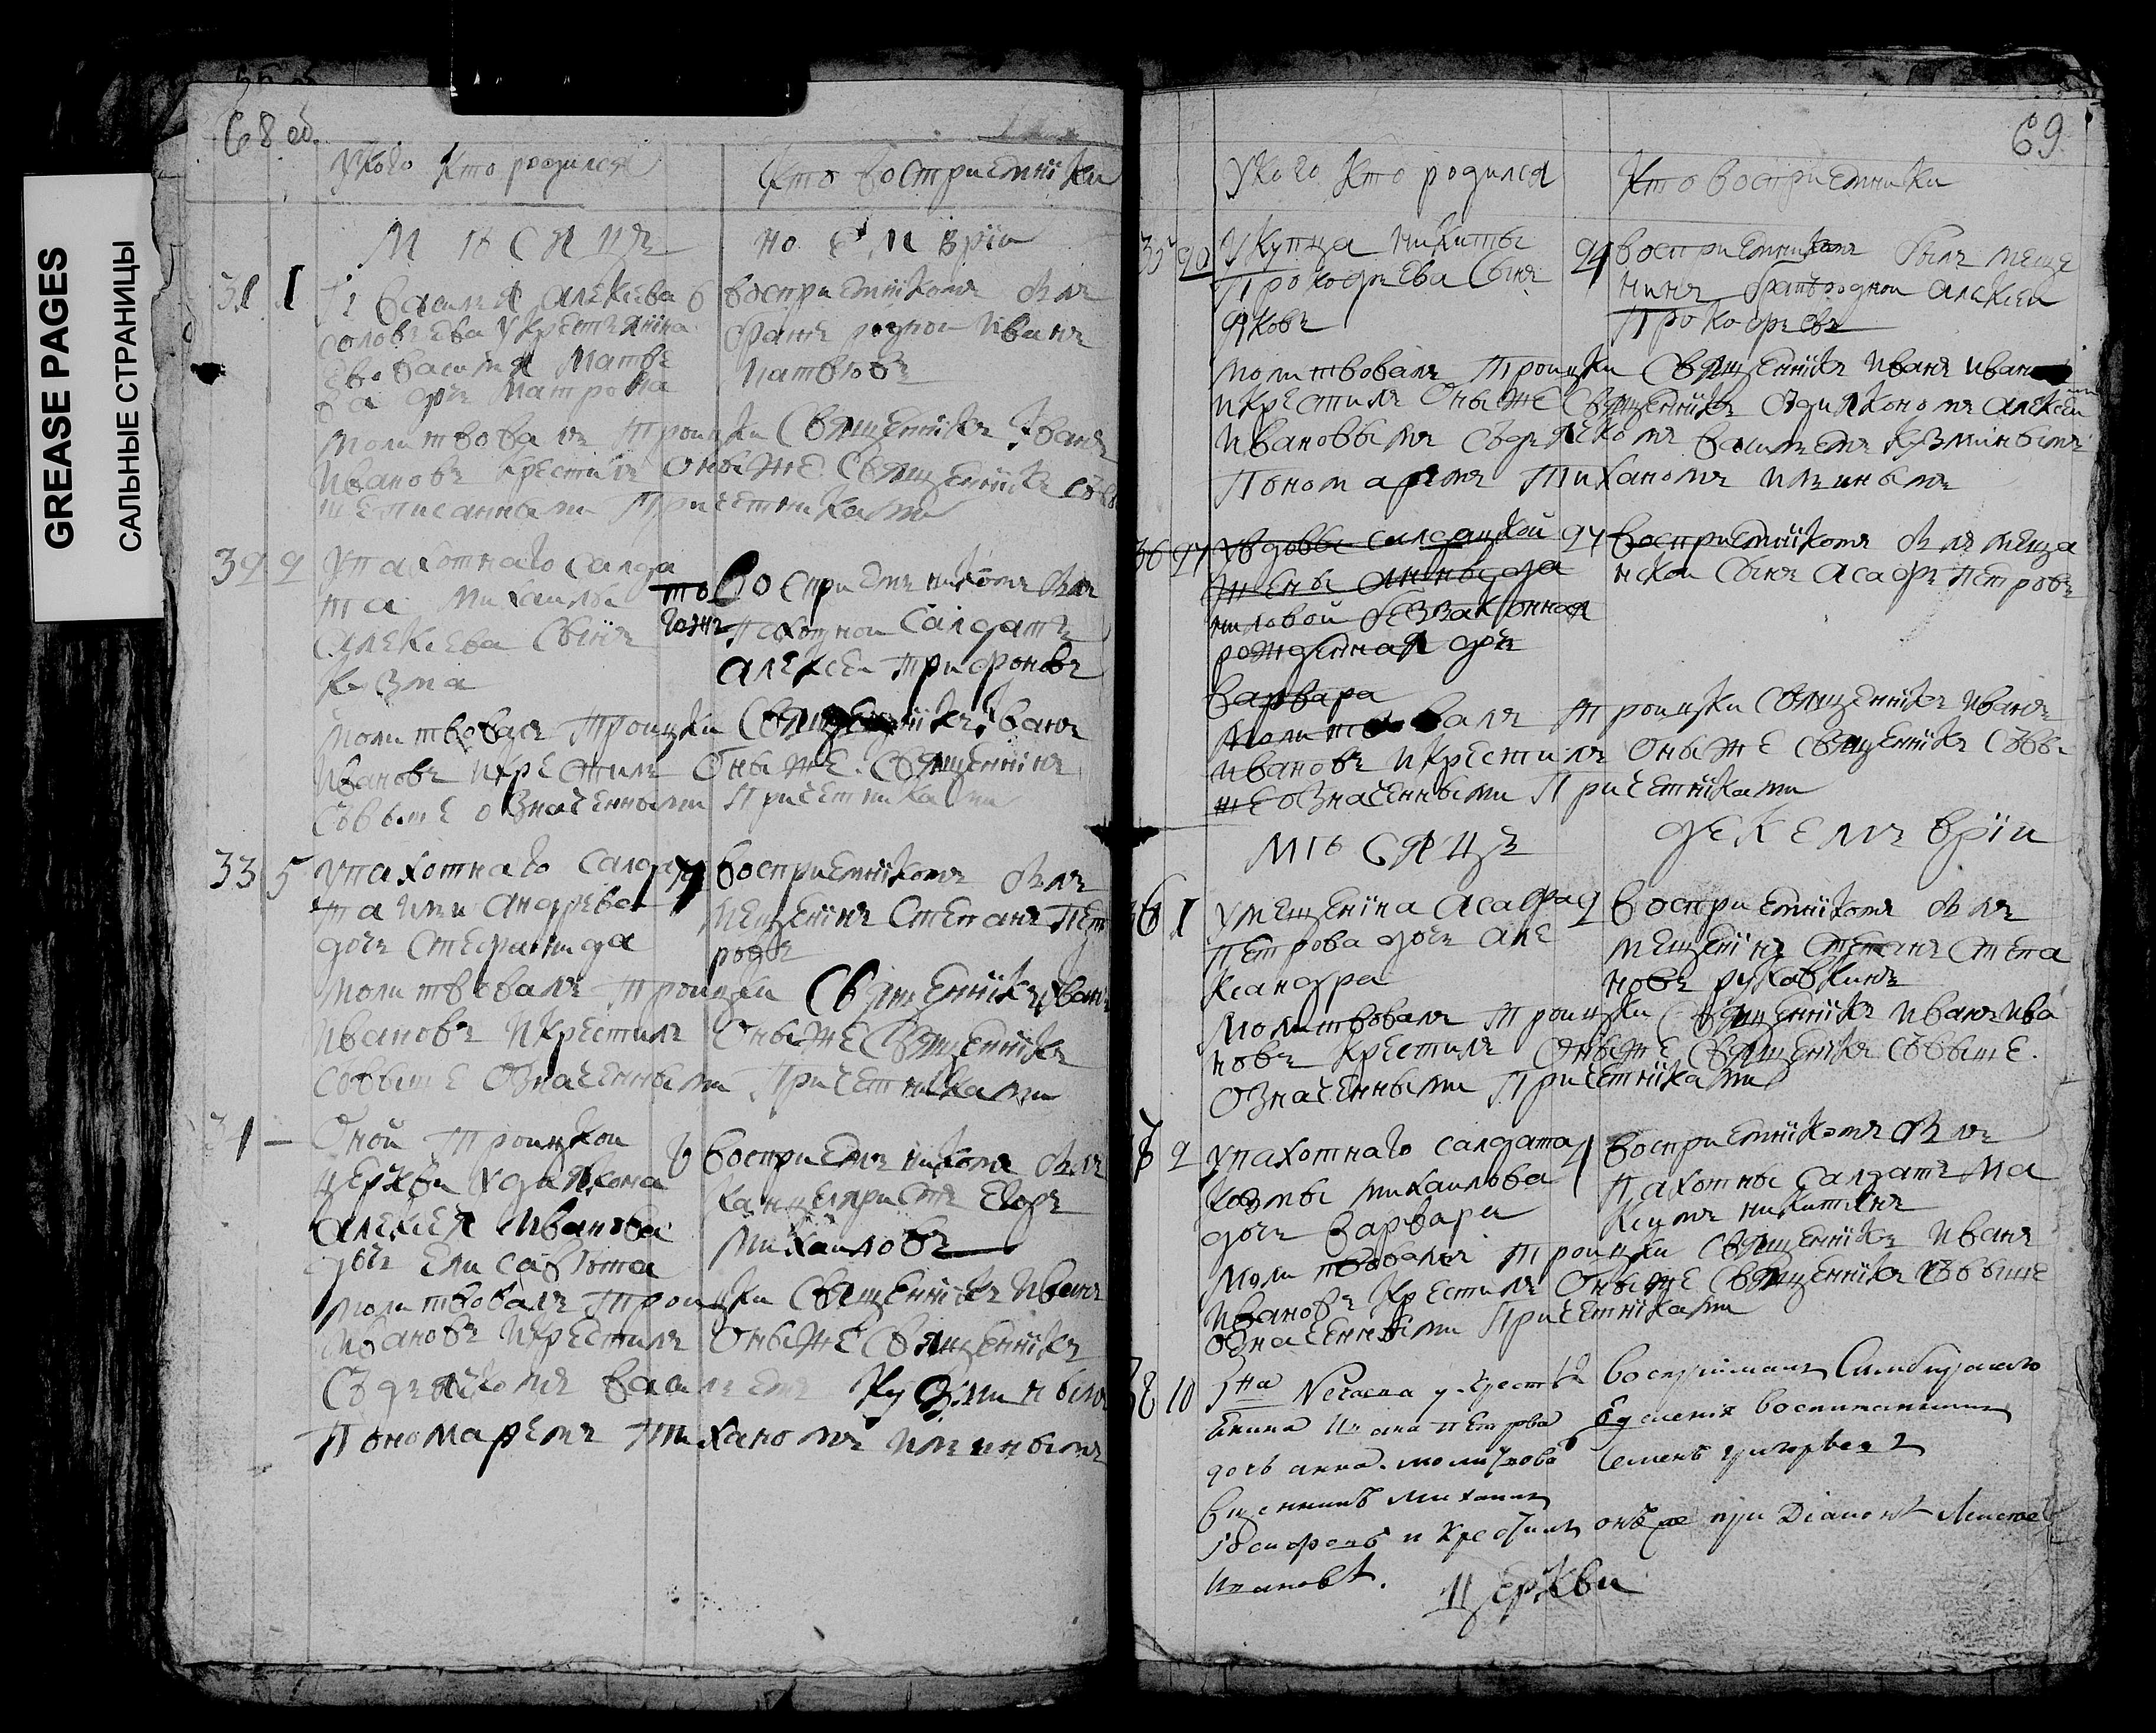 GREASE PAGES
САЛЬНЫЕ СТРАНИЦЫ
68 об.
У кого кто родился
Кто восприемники
Месяць
ноемврїи
31 1
Василья Алексева 6
соловьева у крестьянина
ево василья Матве
ва дочь Матрона
восприемникомъ былъ
братъ родной Иванъ
Матвѣевъ
молитвовалъ Троицки священникъ Иванъ
Ивановъ крестилъ оный же священникъ
писанными Причетниками
32 2
У пахотнаго салда
та Михаилы
Алексева сынъ
Козма
того ж
восприемникомъ былъ
пахотной салдатъ
Алексеи Трифоновъ
молитвовалъ Троицки священникъ Иванъ
Ивановъ и крестилъ оный же священникъ
с выше означенными Причетниками
33 5
У пахотнаго салда 7
та Ильи Андреева
дочь Стефанида
восприемникомъ былъ
мещенинъ Степанъ Пет
ровъ
молитвовалъ Троицки священникъ Иванъ
Ивановъ и крестилъ оный же священникъ
с выше означенными Причетниками
34 —
Оной Троицкой
церкви у диякона
Алексея Иванова
дочь Елисавѣта
восприемникомъ былъ
канцеляристъ Егоръ
Михаиловъ
молитвовалъ Троицки священникъ Иванъ
Ивановъ и крестилъ оный же священникъ
съ дьячкомъ Васильемъ Кузминымъ
Пономаремъ Тиханомъ Ильинымъ
69
У кого кто родился
Кто восприемники
35 20
У купца Никиты 24
Прокофьева сынъ
Яковъ
восприемникомъ былъ меще
нинъ братъ родной Алексеи
Прокофьевъ
молитвовалъ Троицки священникъ Иванъ Иванов
и крестилъ оный же священникъ с дияконом Алексеи
Ивановымъ с дьячкомъ Васильемъ Кузминымъ
Пономаремъ Тиханомъ Ильинымъ
36 27
У вдовы салдацкой 27
жены Анны Дани
ловой беззаконная
рожденная дочь
Варвара
восприемникомъ былъ меща
нской сынъ Асафъ Петровъ
Молитвовалъ Троицки священникъ Иванъ
Ивановъ и крестилъ оный же священникъ с вы
ше означенными Причетниками
Мѣсяцъ
декемъврїи
36 1
У мещенина Асафа 2
Петрова дочь Але
ксандра
восприемникомъ былъ
мещенинъ Степанъ Степа
новъ Рукавкинъ
Молитвовалъ Троицки священникъ Иванъ Ива
новъ крестилъ оный же священникъ с выше
означенными Причетниками
37 2
У пахотнаго салдата 4
Козмы Михаилова
дочь Варвара
восприемникомъ былъ
пахотны салдатъ Ма
ксимъ Никитинъ
Молитвовалъ Троицки священникъ Иванъ
Ивановъ крестилъ оный же священникъ с выше
означенными Причетниками
38 10
у крестья 12
нина Ивана Петрова
дочь Анна. молитвова
священникъ Михаилъ
Иосифовъ и крестилъ онъ же при Диаконѣ Алексеѣ
Ивановѣ.
воспріималъ Симбирскаго
Семенъ Григорьевъ
Церкви